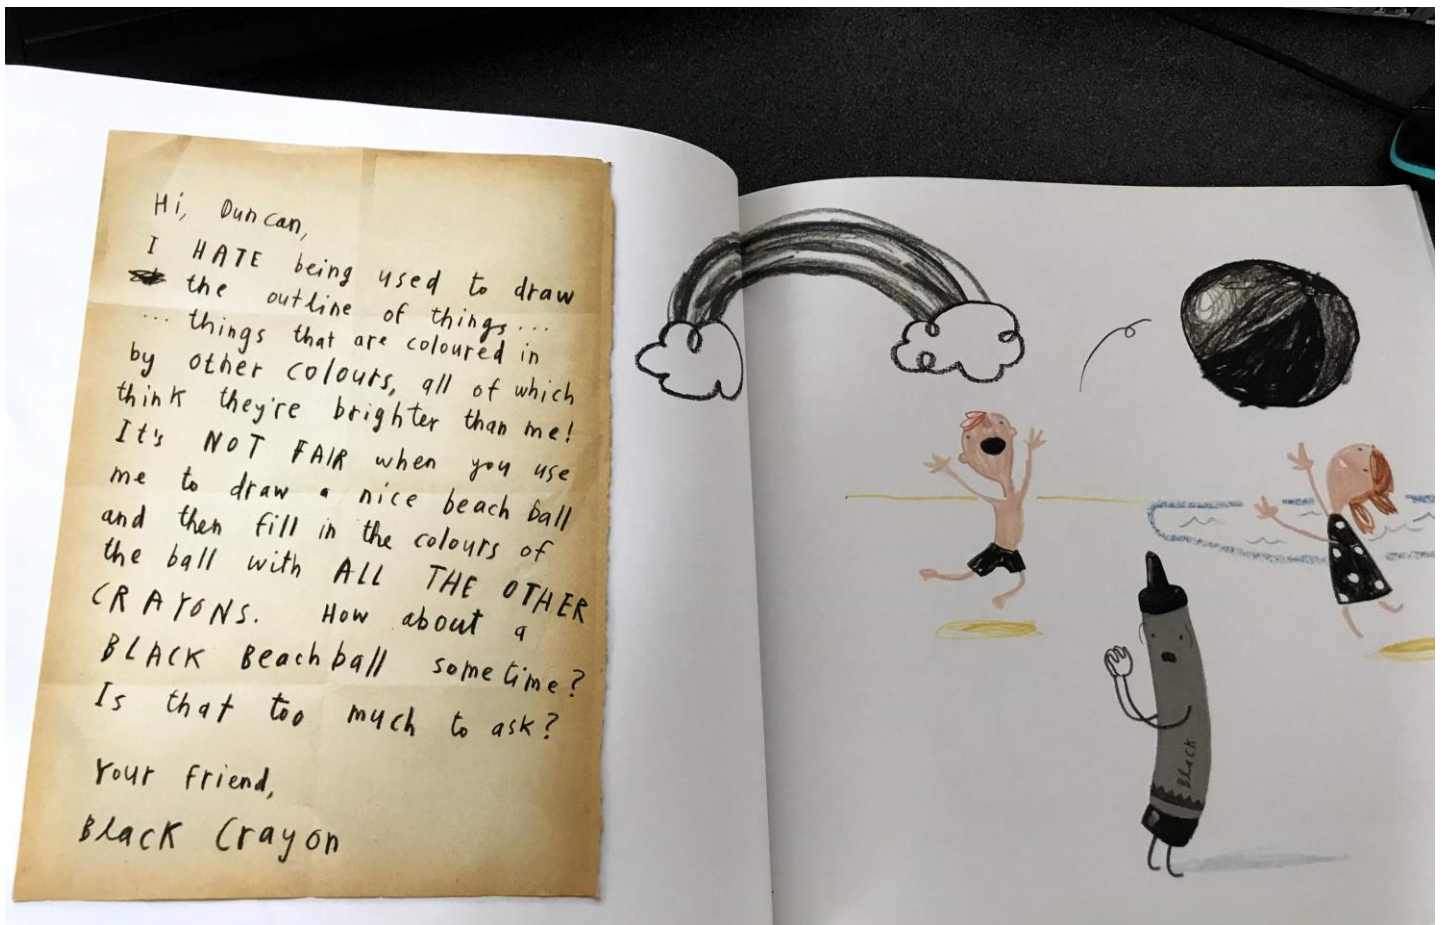 Hi, Duncan,
I HATE being used to draw
the outline of things...
... things that are coloured in
by other colours, all of which
think they're brighter than me!
It's NOT FAIR when you use
me to draw a nice beach ball
and then fill in the colours of
the ball with ALL THE OTHER
CRAYONS. How about a
BLACK Beach ball sometime?
Is that too much to ask?
Your friend,
Black Crayon
Black